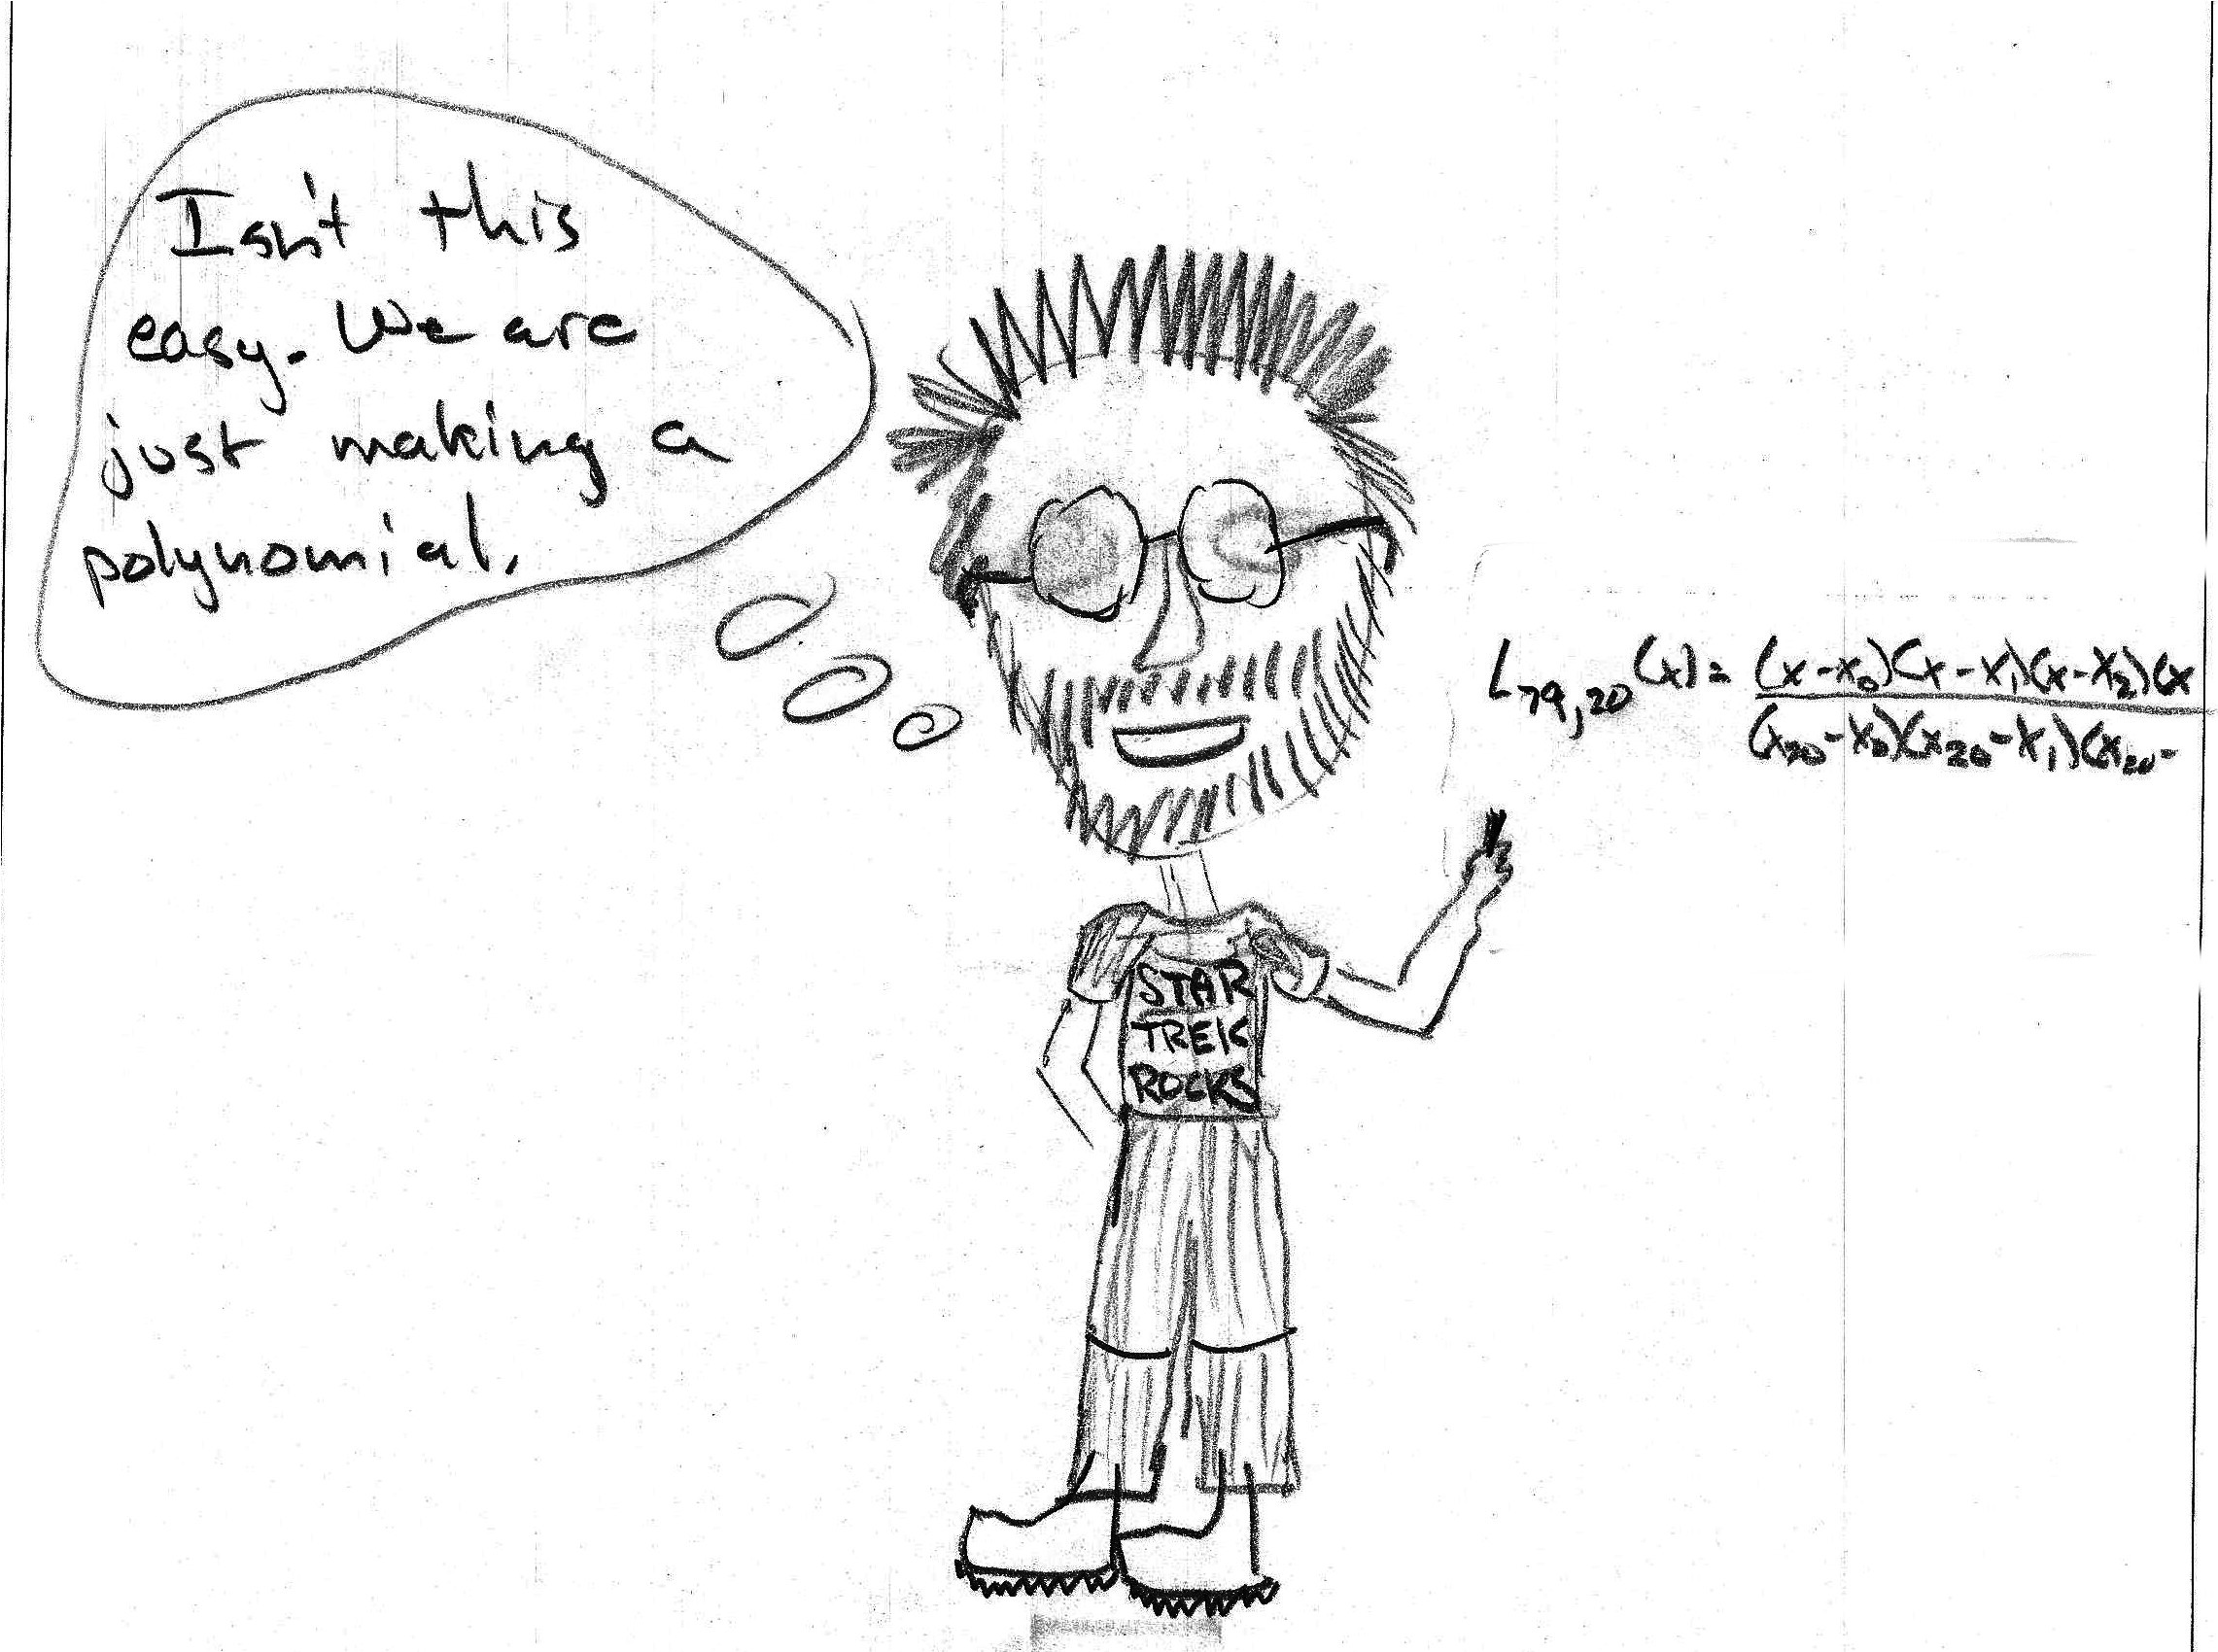 Isn't this
easy. We are
just making a
polynomial.
L79,20(x) = (x-x0)(x-x1)(x-x2)(x
(x20-x0)(x20-x1)(x20-
STAR
TREK
ROCKS